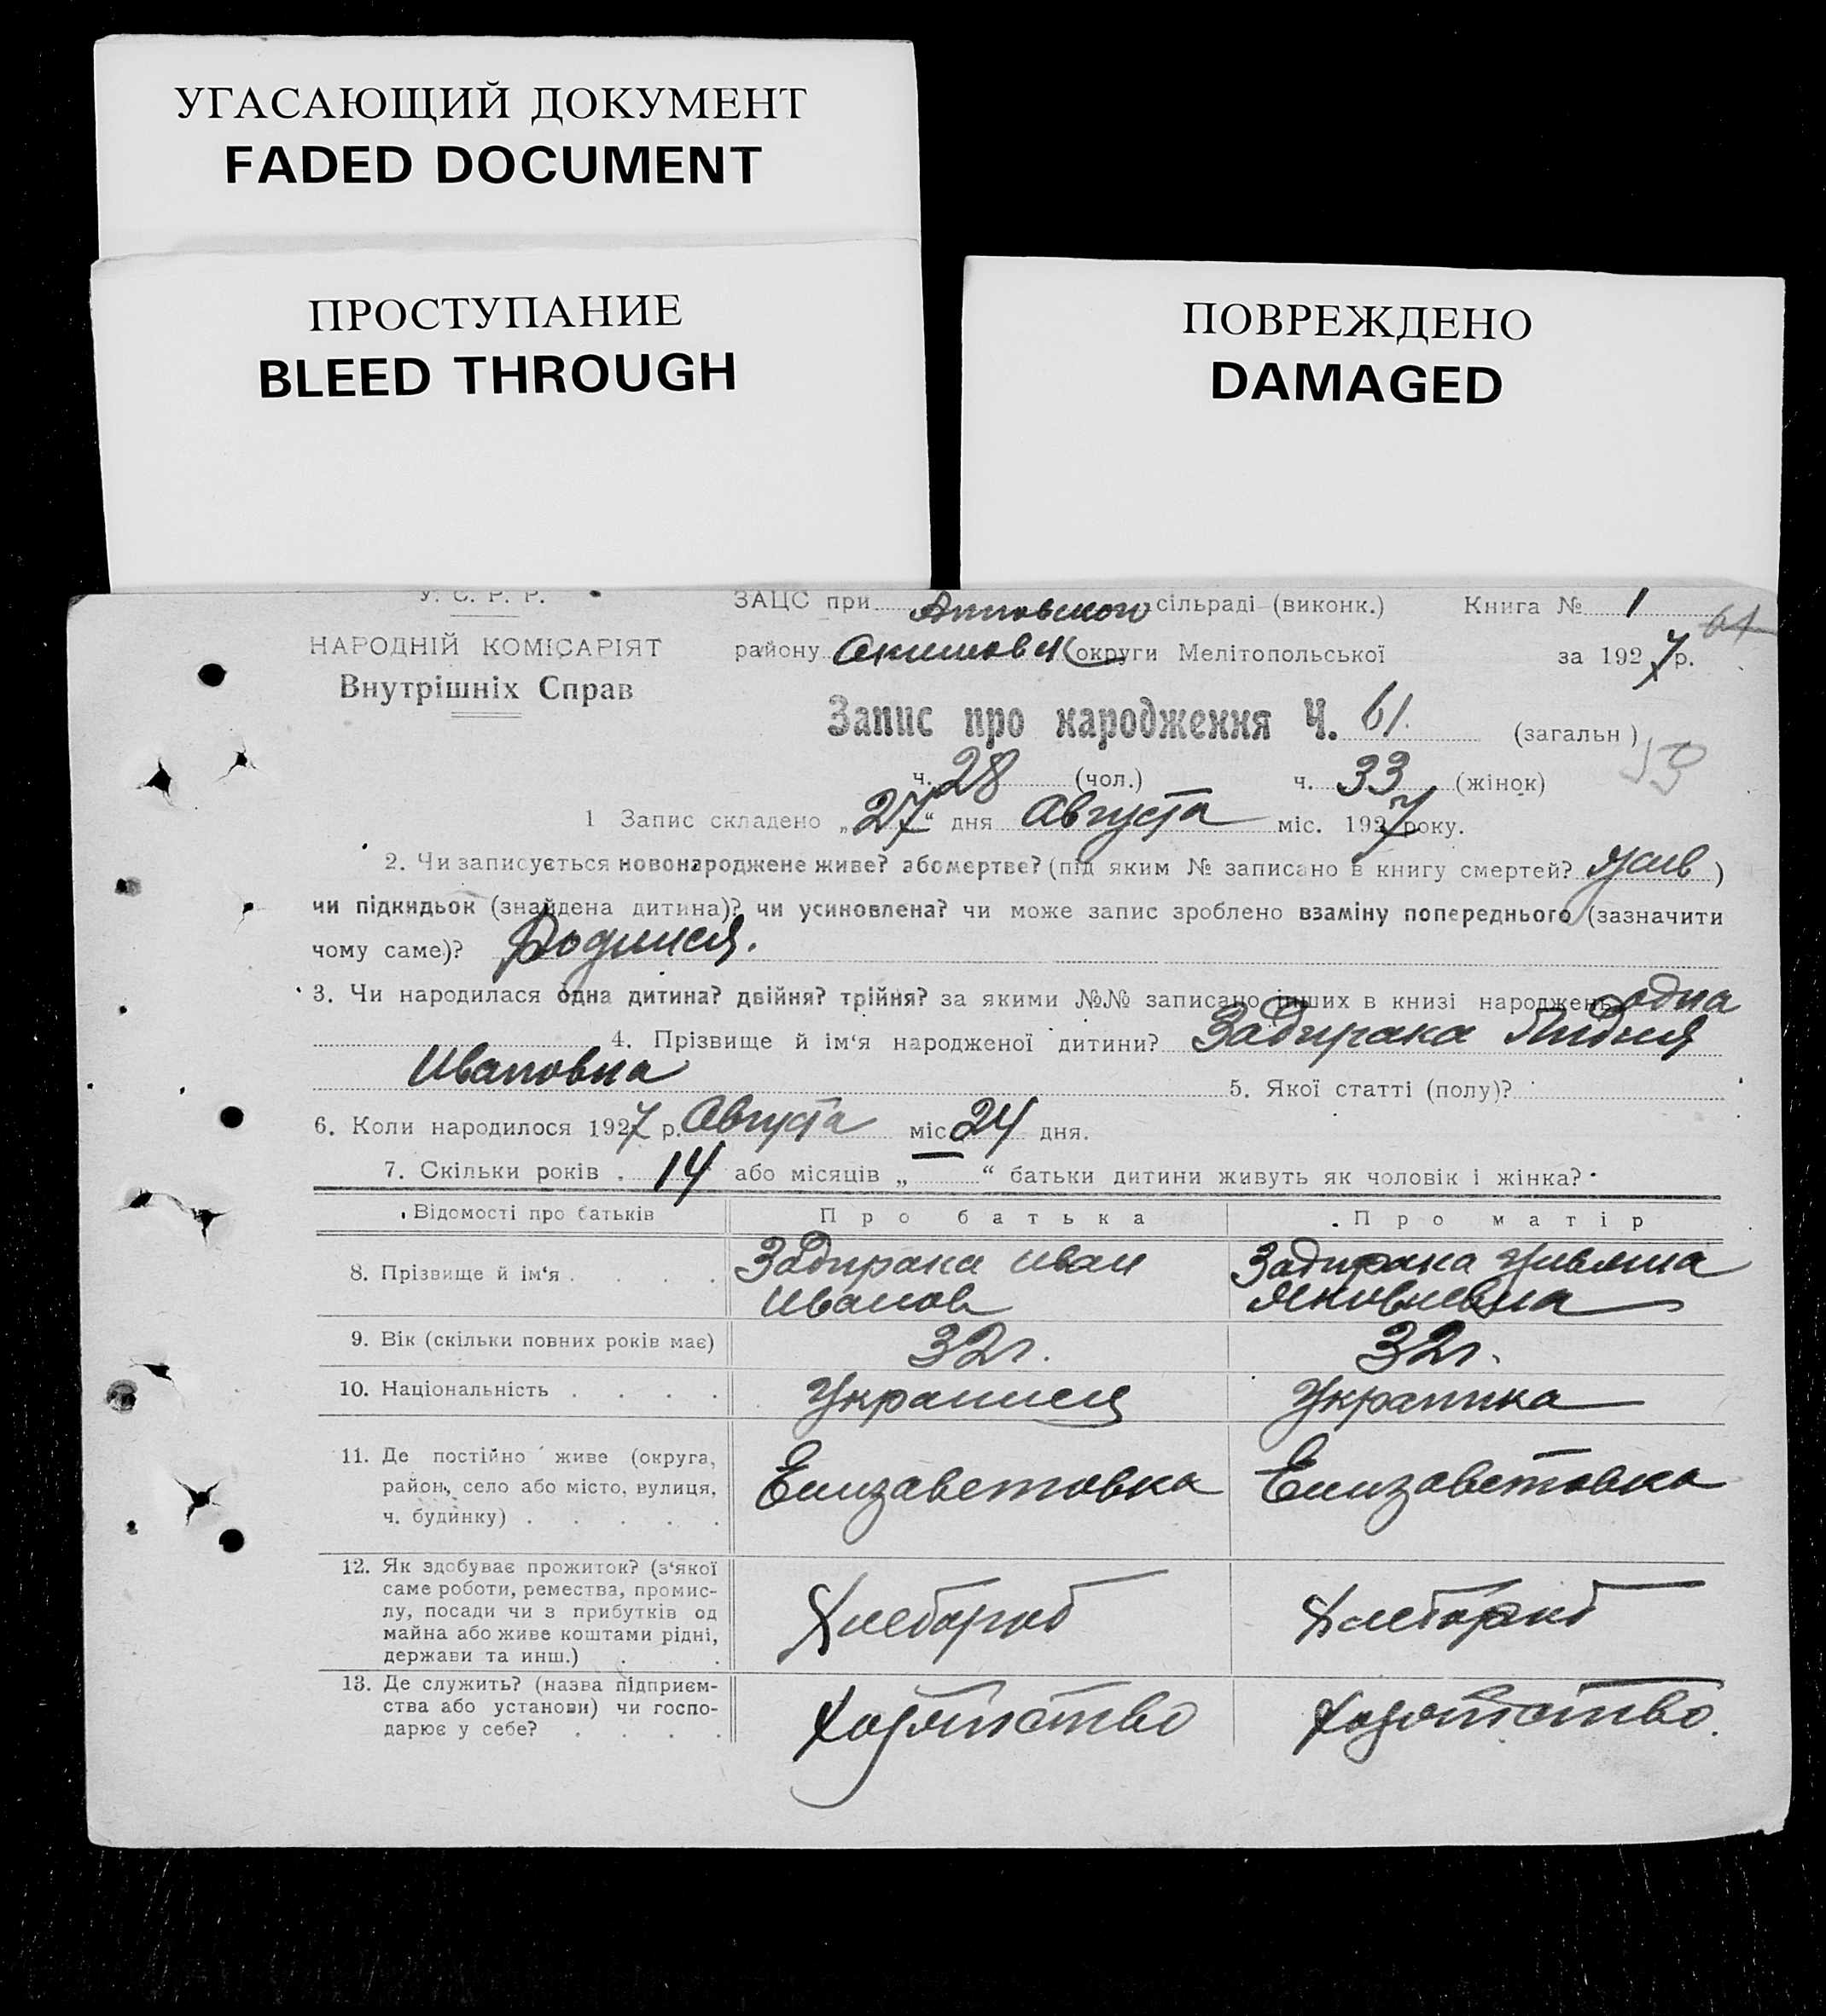 УГАСАЮЩИЙ ДОКУМЕНТ
FADED DOCUMENT
ПРОСТУПАНИЕ
BLEED THROUGH
ПОВРЕЖДЕНО
DAMAGED
У. С. Р. Р.
НАРОДНІЙ КОМІСАРІЯТ
Внутрішніх Справ
ЗАЦС при сільраді (виконк.) Книга № 1
району Акимовск округи Мелітопольської за 1927 р.
61
Запис про народження Ч. 61 (загальн)
ч. 28 (чол.) ч. 33 (жінок)
1 Запис складено „27“ дня Августа міс. 1927 року.
2. Чи записується новонароджене живе? або мертве? (під яким № записано в книгу смертей? )
чи підкидьок (знайдена дитина)? чи усиновлена? чи може запис зроблено взаміну попереднього (зазначити
чому саме)? Родился.
3. Чи народилася одна дитина? двійня? трійня? за якими №№ записано інших в книзі народжень одна
4. Прізвище й ім‘я народженої дитини? Задирака Лидия
Ивановна 5. Якої статті (полу)?
6. Коли народилося 1927 р. Августа міс 24 дня.
7. Скільки років 14 або місяців „ “ батьки дитини живуть як чоловік і жінка?
Відомості про батьків Про батька Про матір
8. Прізвище й ім‘я . . . . Задирака Иван Задирака
Иванов Яковлевна
9. Вік (скільки повних років має) 32 г. 32 г.
10. Національність . . . . Украинец Украинка
11. Де постійно живе (округа,
район, село або місто, вулиця,
ч. будинку) . . . . .
Елизаветовка Елизаветовка
12. Як здобуває прожиток? (з‘якої
саме роботи, ремества, промис-
лу, посади чи з прибутків од
майна або живе коштами рідні,
держави та инш.) . .
Хлебороб Хлебороб
13. Де служить? (назва підприєм-
ства або установи) чи госпо-
дарює у себе? . . . .
Хозяйство Хозяйство.